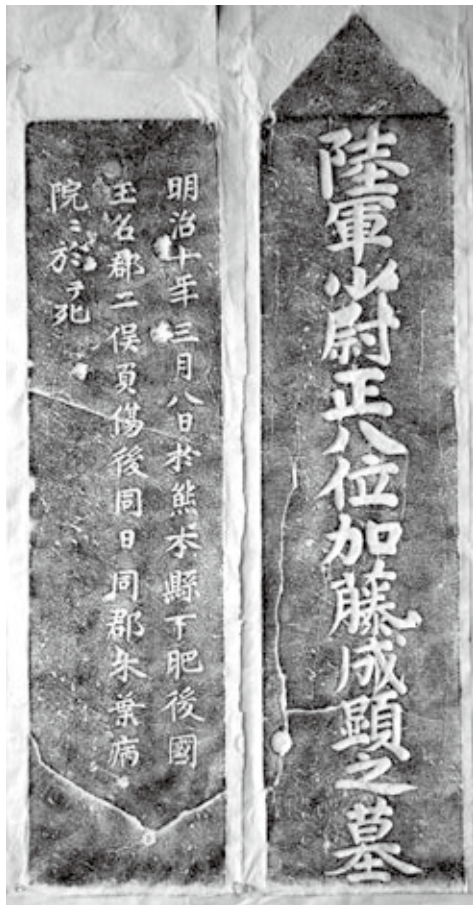 陸軍少尉正八位加藤成顕之墓
明治十年三月八日於熊本縣下肥後國
玉名郡二俣負傷後同日同郡朱葉病
院ニ於テ死